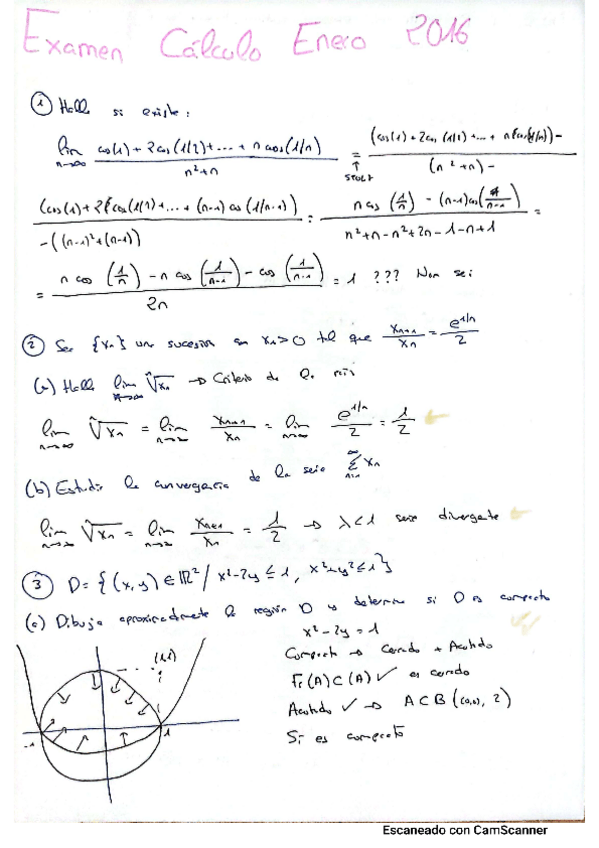 Examen Cálculo Enero 2016
① Halla si existe:
lim n→∞ (cos(1) + 2cos(1/2) + ... + n cos(1/n)) / (n² + n) = ↑ STOLZ ((cos(1) + 2cos(1/2) + ... + n cos(1/n)) − / (n² + n) −
(cos(1) + 2 cos(1/2) + ... + (n-1) cos(1/n-1)) / −((n-1)² + (n-1)) = (n cos(1/n) − (n-1) cos(1/n-1)) / (n² + n − n² + 2n − 1 − n + 1) =
= (n cos(1/n) − n cos(1/n-1) − cos(1/n-1)) / 2n = 1 ???
② Sea {xn} una sucesion con x1>0 tal que xn+1/xn = e^(1/n)/2
(a) Halla lim n→∞ ⁿ√xn → Criterio de la raiz
lim n→∞ ⁿ√xn = lim n→∞ xn+1/xn = lim n→∞ e^(1/n)/2 = 1/2
(b) Estudia la convergencia de la serie ∞ Σ n=1 xn
lim n→∞ ⁿ√xn = lim n→∞ xn+1/xn = 1/2 → λ<1 serie divergente
③ D = {(x,y) ∈ ℝ² / x²-2y ≤ 1, x²+y² ≤ 1}
(a) Dibuja aproximadamente la región D y determina si D es compacto
x² - 2y = 1
(1,1)
Compacto → Cerrado + Acotado
Fr(A) ⊂ (A) ✓ es cerrado
-1
1
Acotado ✓ → A ⊂ B((0,0), 2)
Sí es compacto
Escaneado con CamScanner